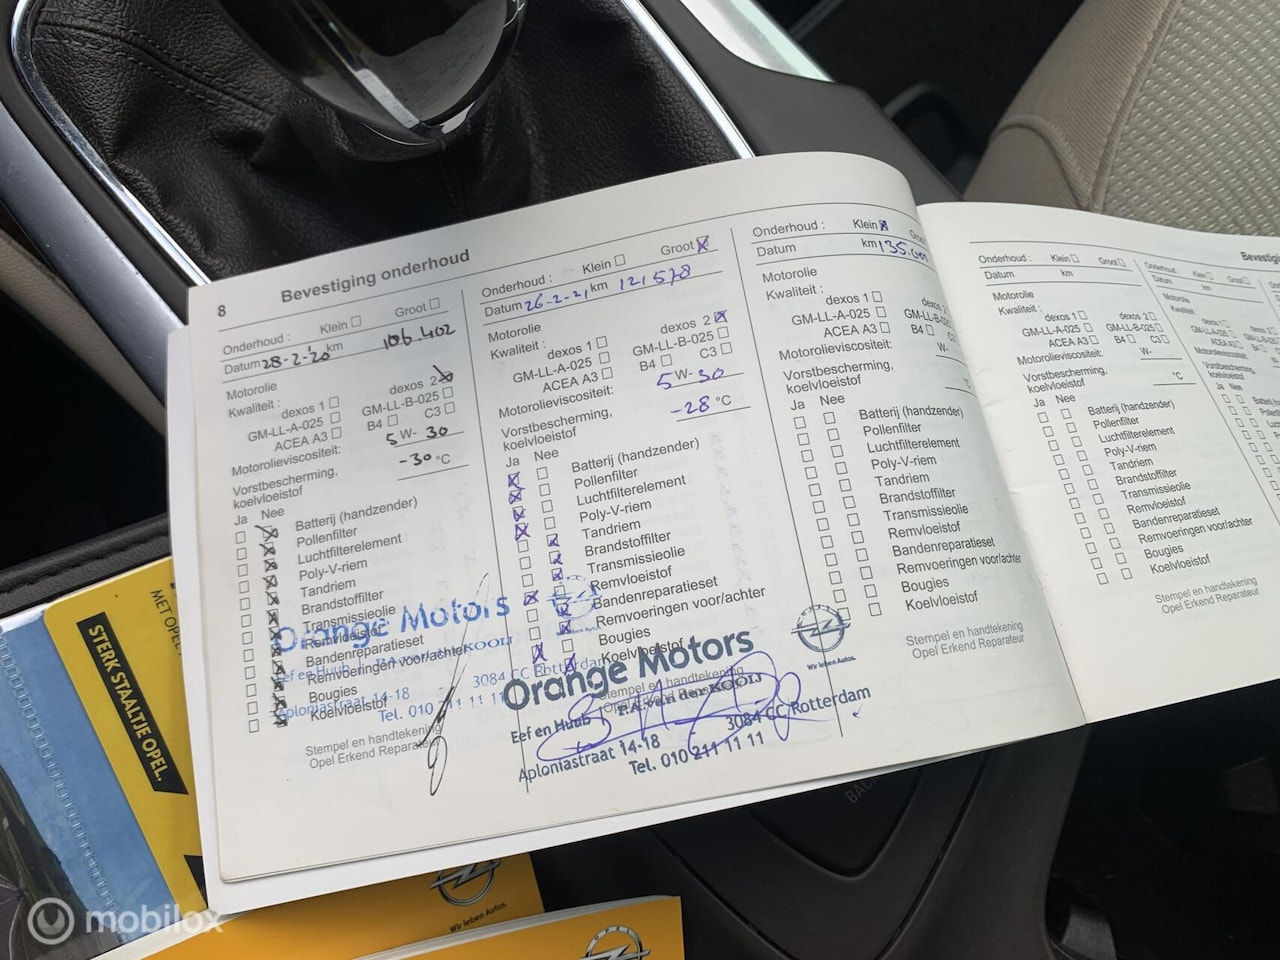 8
Bevestiging onderhoud
Onderhoud : Klein Groot
Datum 28-2-'20 km 106.402
Motorolie
Kwaliteit : dexos 1 dexos 2
GM-LL-A-025 GM-LL-B-025
ACEA A3 B4 C3
Motorolieviscositeit: 5 W- 30
Vorstbescherming,
koelvloeistof -30 °C
Ja Nee
Batterij (handzender)
Pollenfilter
Luchtfilterelement
Poly-V-riem
Tandriem
Brandstoffilter
Transmissieolie
Remvloeistof
Bandenreparatieset
Remvoeringen voor/achter
Bougies
Koelvloeistof
Stempel en handtekening
Opel Erkend Reparateur
Orange Motors
Eef en Huub
Aploniastraat 14-18 3084 CC Rotterdam
Tel. 010 211 11 11
Onderhoud : Klein Groot
Datum 26-2-21 km 121578
Motorolie
Kwaliteit : dexos 1 dexos 2
GM-LL-A-025 GM-LL-B-025
ACEA A3 B4 C3
Motorolieviscositeit: 5 W- 30
Vorstbescherming,
koelvloeistof -28 °C
Ja Nee
Batterij (handzender)
Pollenfilter
Luchtfilterelement
Poly-V-riem
Tandriem
Brandstoffilter
Transmissieolie
Remvloeistof
Bandenreparatieset
Remvoeringen voor/achter
Bougies
Koelvloeistof
Stempel en handtekening
Orange Motors
Eef en Huub F.A. van der KOOIJ
Aploniastraat 14-18 3084 CC Rotterdam
Tel. 010 211 11 11
Onderhoud : Klein
Datum km 135.000
Motorolie
Kwaliteit : dexos 1 dexos 2
GM-LL-A-025
ACEA A3 B4
Motorolieviscositeit: W-
Vorstbescherming,
koelvloeistof °C
Ja Nee
Batterij (handzender)
Pollenfilter
Luchtfilterelement
Poly-V-riem
Tandriem
Brandstoffilter
Transmissieolie
Remvloeistof
Bandenreparatieset
Remvoeringen voor/achter
Bougies
Koelvloeistof
Stempel en handtekening
Opel Erkend Reparateur
Wir leben Autos.
Onderhoud : Klein Groot
Datum km
Motorolie
Kwaliteit : dexos 1 dexos 2
GM-LL-A-025 GM-LL-B-025
ACEA A3 B4 C3
Motorolieviscositeit: W-
Vorstbescherming,
koelvloeistof °C
Ja Nee
Batterij (handzender)
Pollenfilter
Luchtfilterelement
Poly-V-riem
Tandriem
Brandstoffilter
Transmissieolie
Remvloeistof
Bandenreparatieset
Remvoeringen voor/achter
Bougies
Koelvloeistof
Stempel en handtekening
Opel Erkend Reparateur
Onderhoud : Klein
Datum km
Motorolie
Kwaliteit :
GM-LL-A-025
ACEA A3
Motorolieviscositeit:
Vorstbescherming,
koelvloeistof
Ja Nee
STERK STAALTJE OPEL.
MET OPEL
Wir leben Autos.
OPEL
mobilox